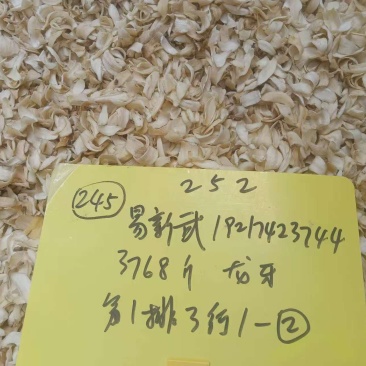 252
245 易新武 19217423744
3768斤 龙牙
第1排3行1-②